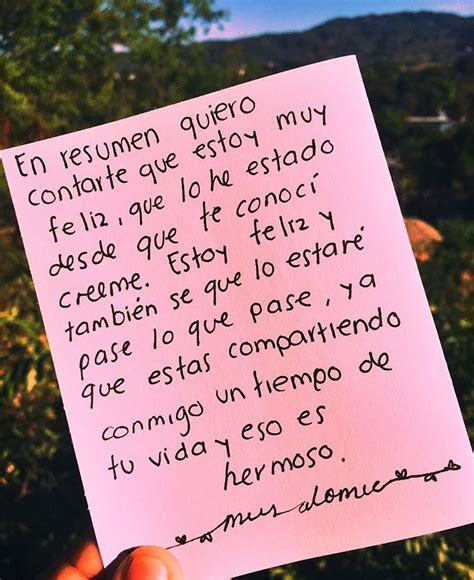 En resumen quiero
contarte que estoy muy
feliz, que lo he estado
desde que te conocí
creeme. Estoy feliz y
también se que lo estaré
pase lo que pase, ya
que estas compartiendo
conmigo un tiempo de
tu vida y eso es
hermoso.